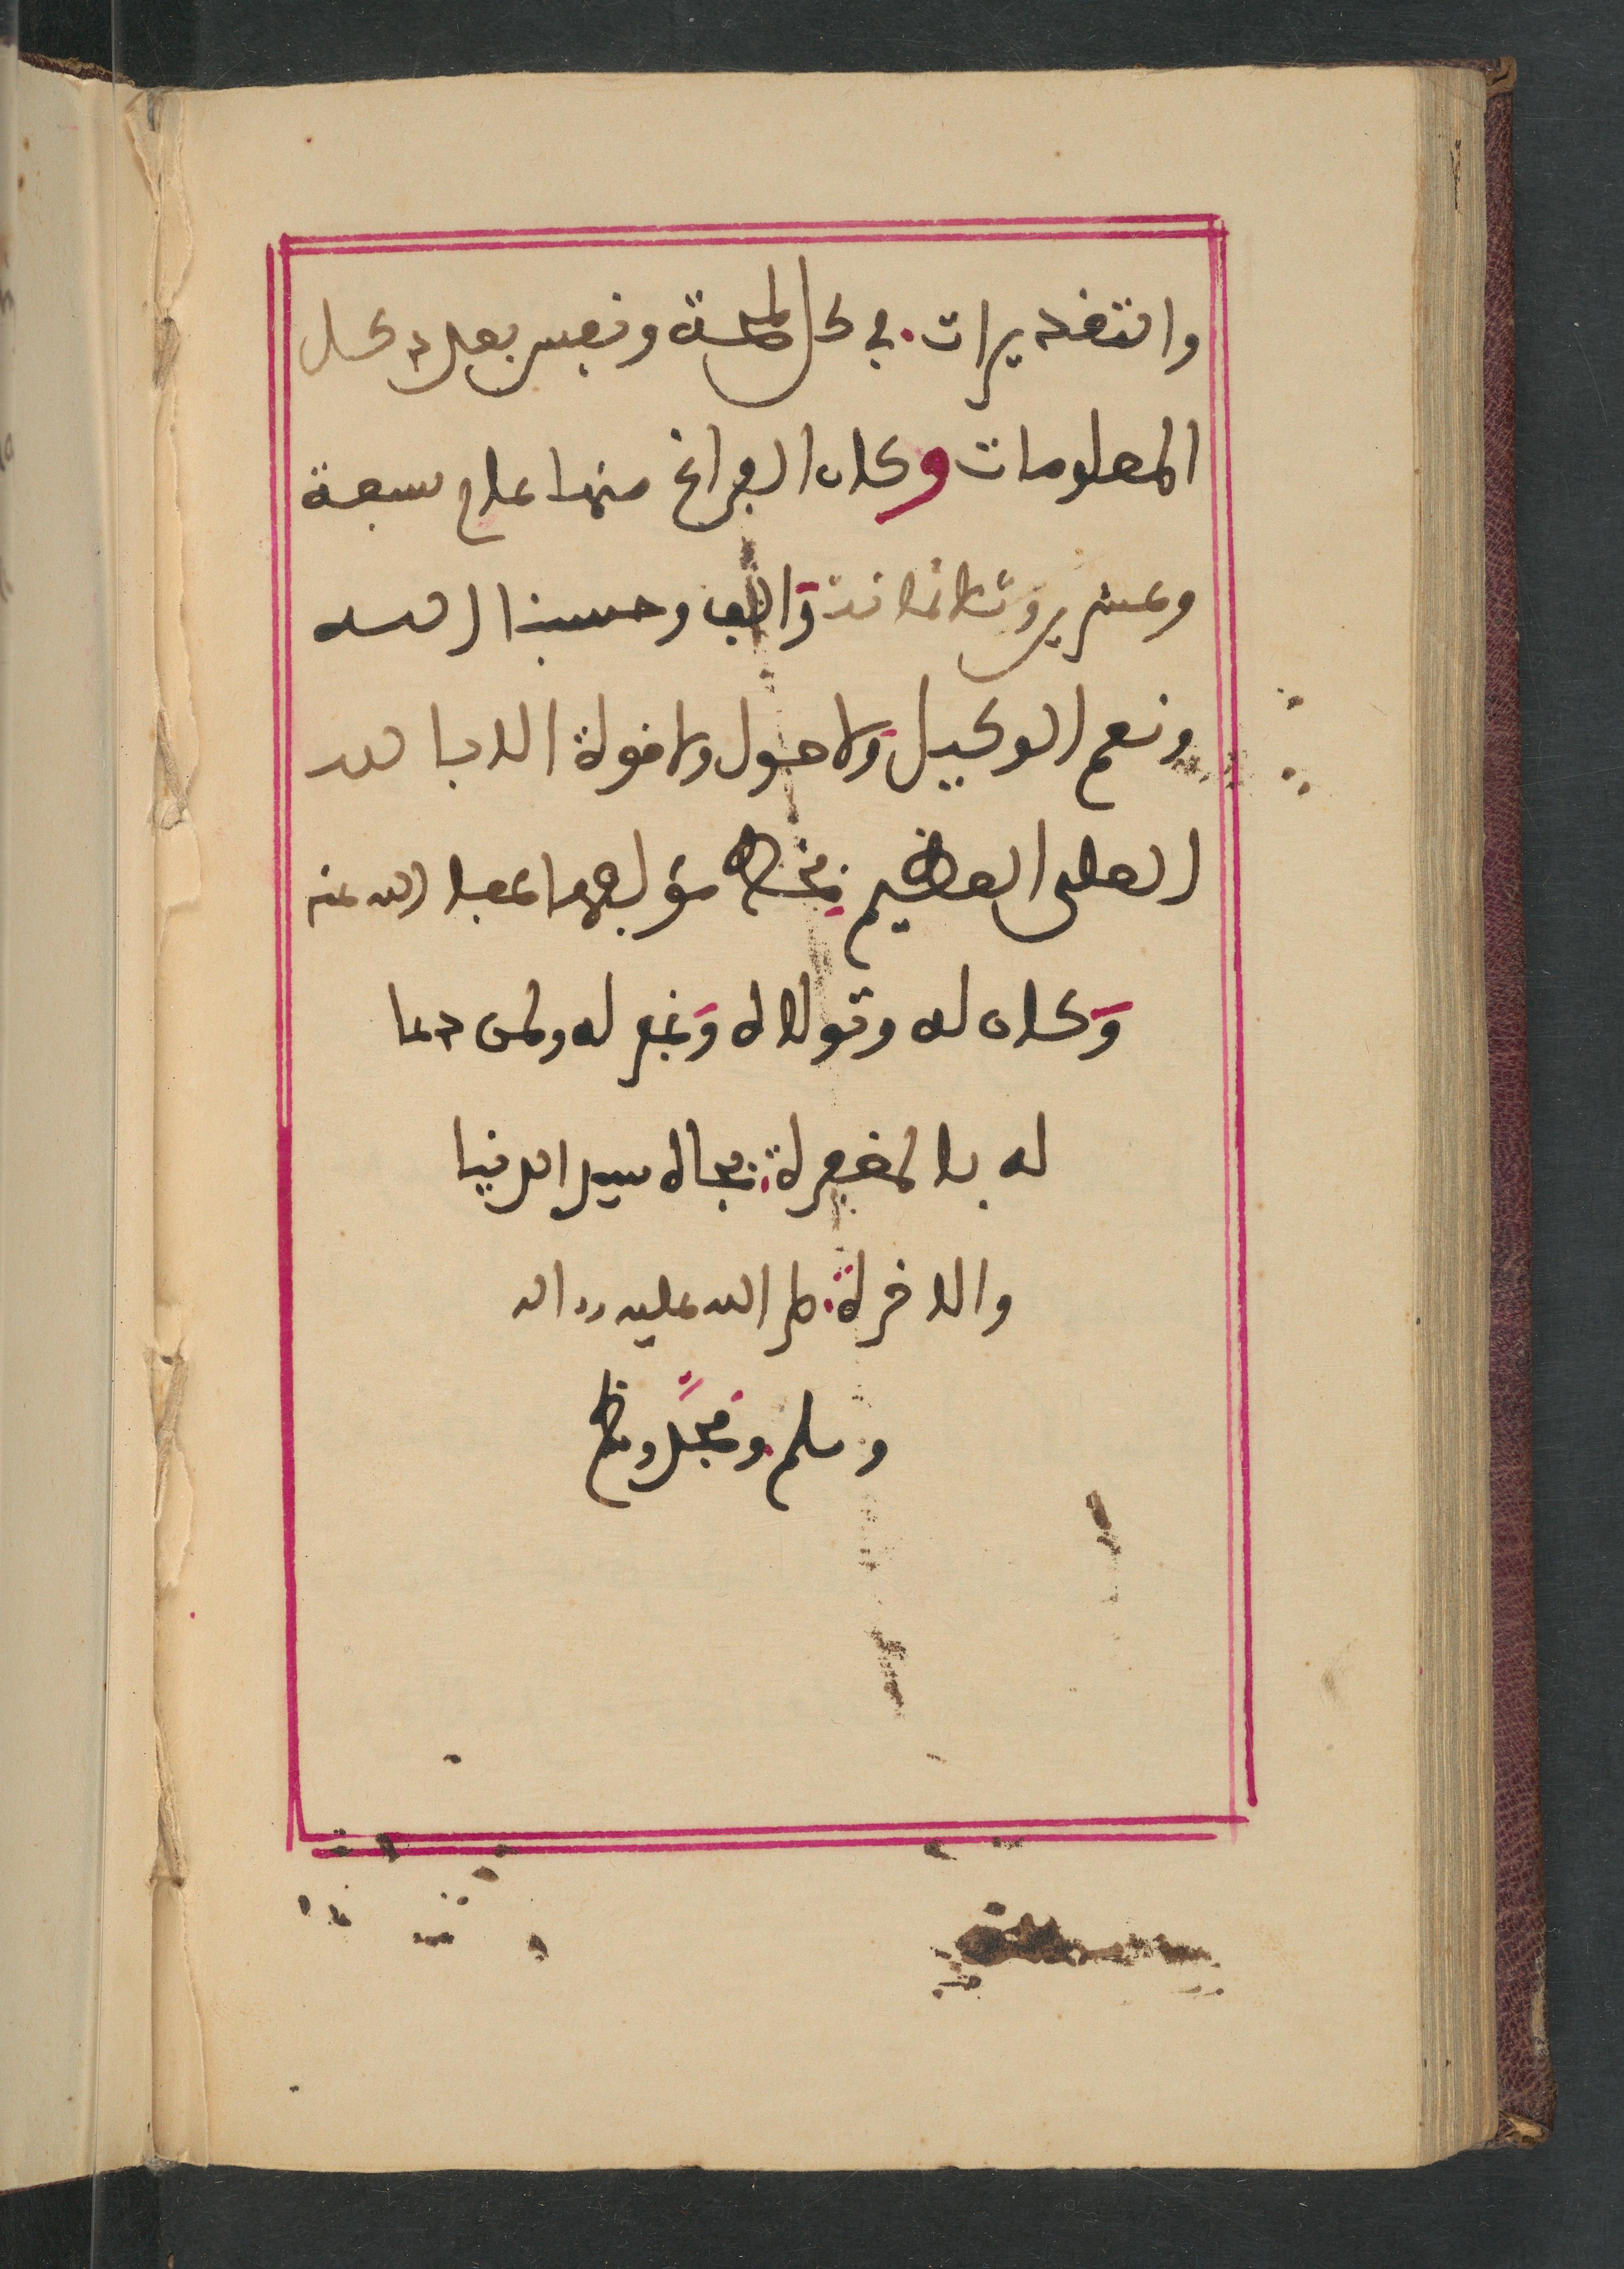 والتقديرات في كل لمحة ونفس بعدد كل
المعلومات وكان الفراغ منها علم سبعة
وعشرين وثلاثمائة والف وحسبنا الله
ونعم الوكيل ولا حول ولا قوة الا بالله
العلى العظيم بخط مؤلفها عفا الله عنه
وكان له وتولاه وغفر له ولمن دعا
له بالمغفرة بجاه سيد الدنيا
والاخرة صلى الله عليه واله
وسلم ومجد وعظم